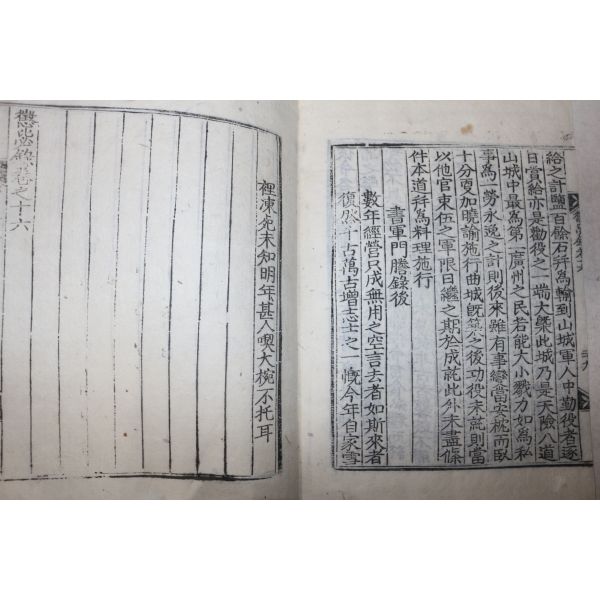 給之計鹽百餘石稱爲輸到山城軍人中勤役者逐
日賞給亦是勸役之一端大槩此城乃是天險八道
山城中最爲第一廣州之民若能大小戮力如爲私
事爲一勞永逸之計則後來雖有事變當安枕而臥
十分更加曉諭施行曲城旣築之後功役未就則當
以他官束伍之軍限日繼之期於成就此外未盡條
件本道料理施行
書軍門謄錄後
數年經營只成無用之空言去者如斯來者
復然千古萬古增志士之一慨今年自家雪
裡凍免未知明年甚人喫大椀不托耳
懲毖錄卷之十六